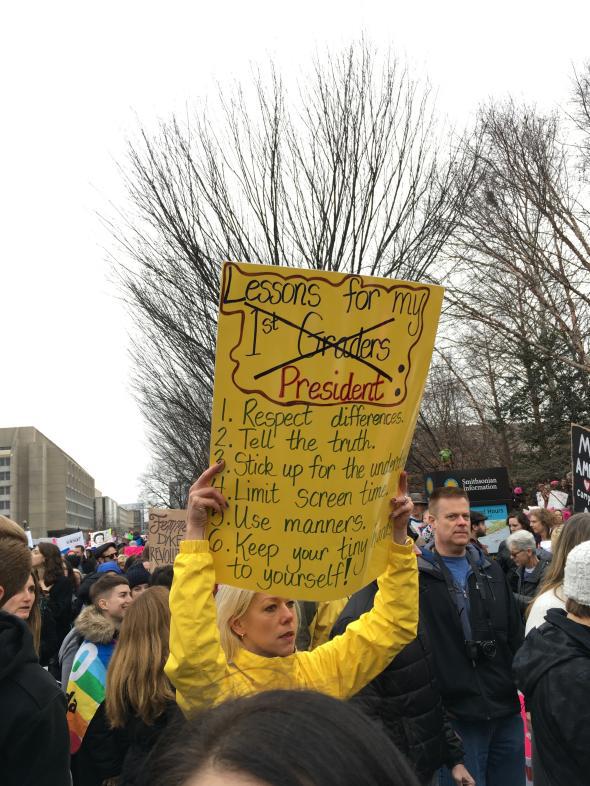 Lessons for my
1st Graders
President :
1. Respect differences.
2. Tell the truth.
3. Stick up for the
4. Limit screen time.
5. Use manners.
6. Keep your tiny
to yourself!
Smithsonian
Information
Hours
DYKE